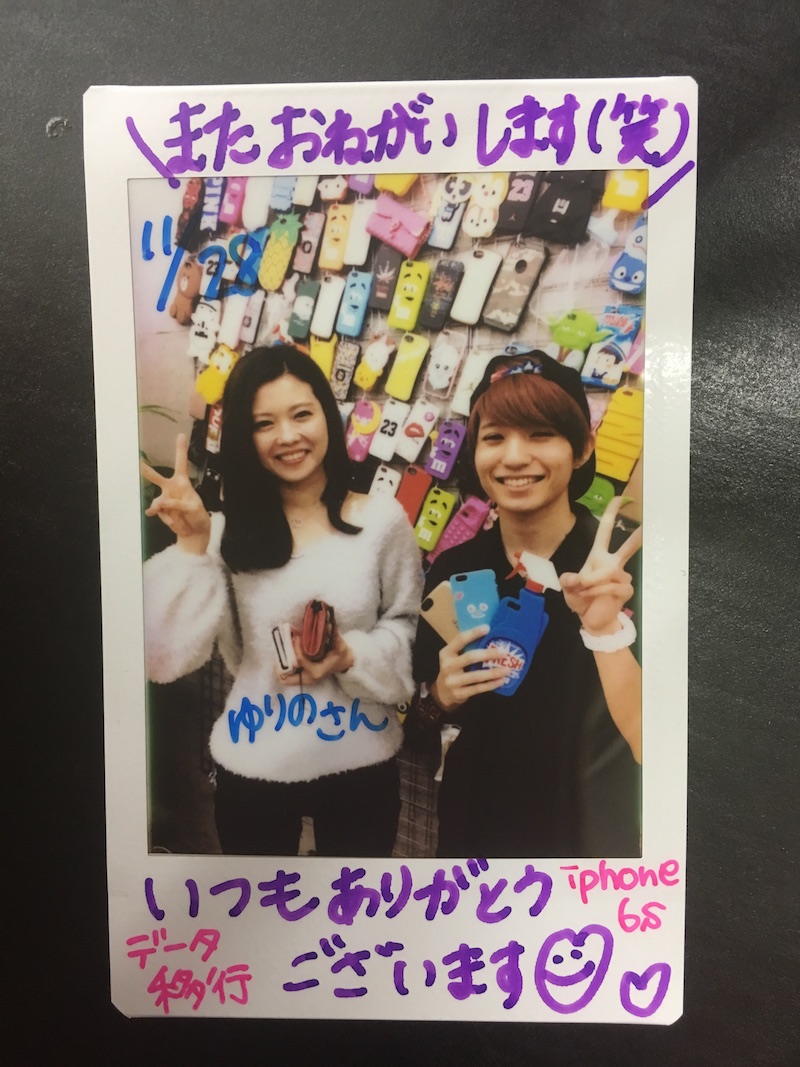 \またおねがいします(笑)/
11/28
PINK
23
23
FRESH
ゆりのさん
いつもありがとう
iphone
6s
データ
移行
ございます